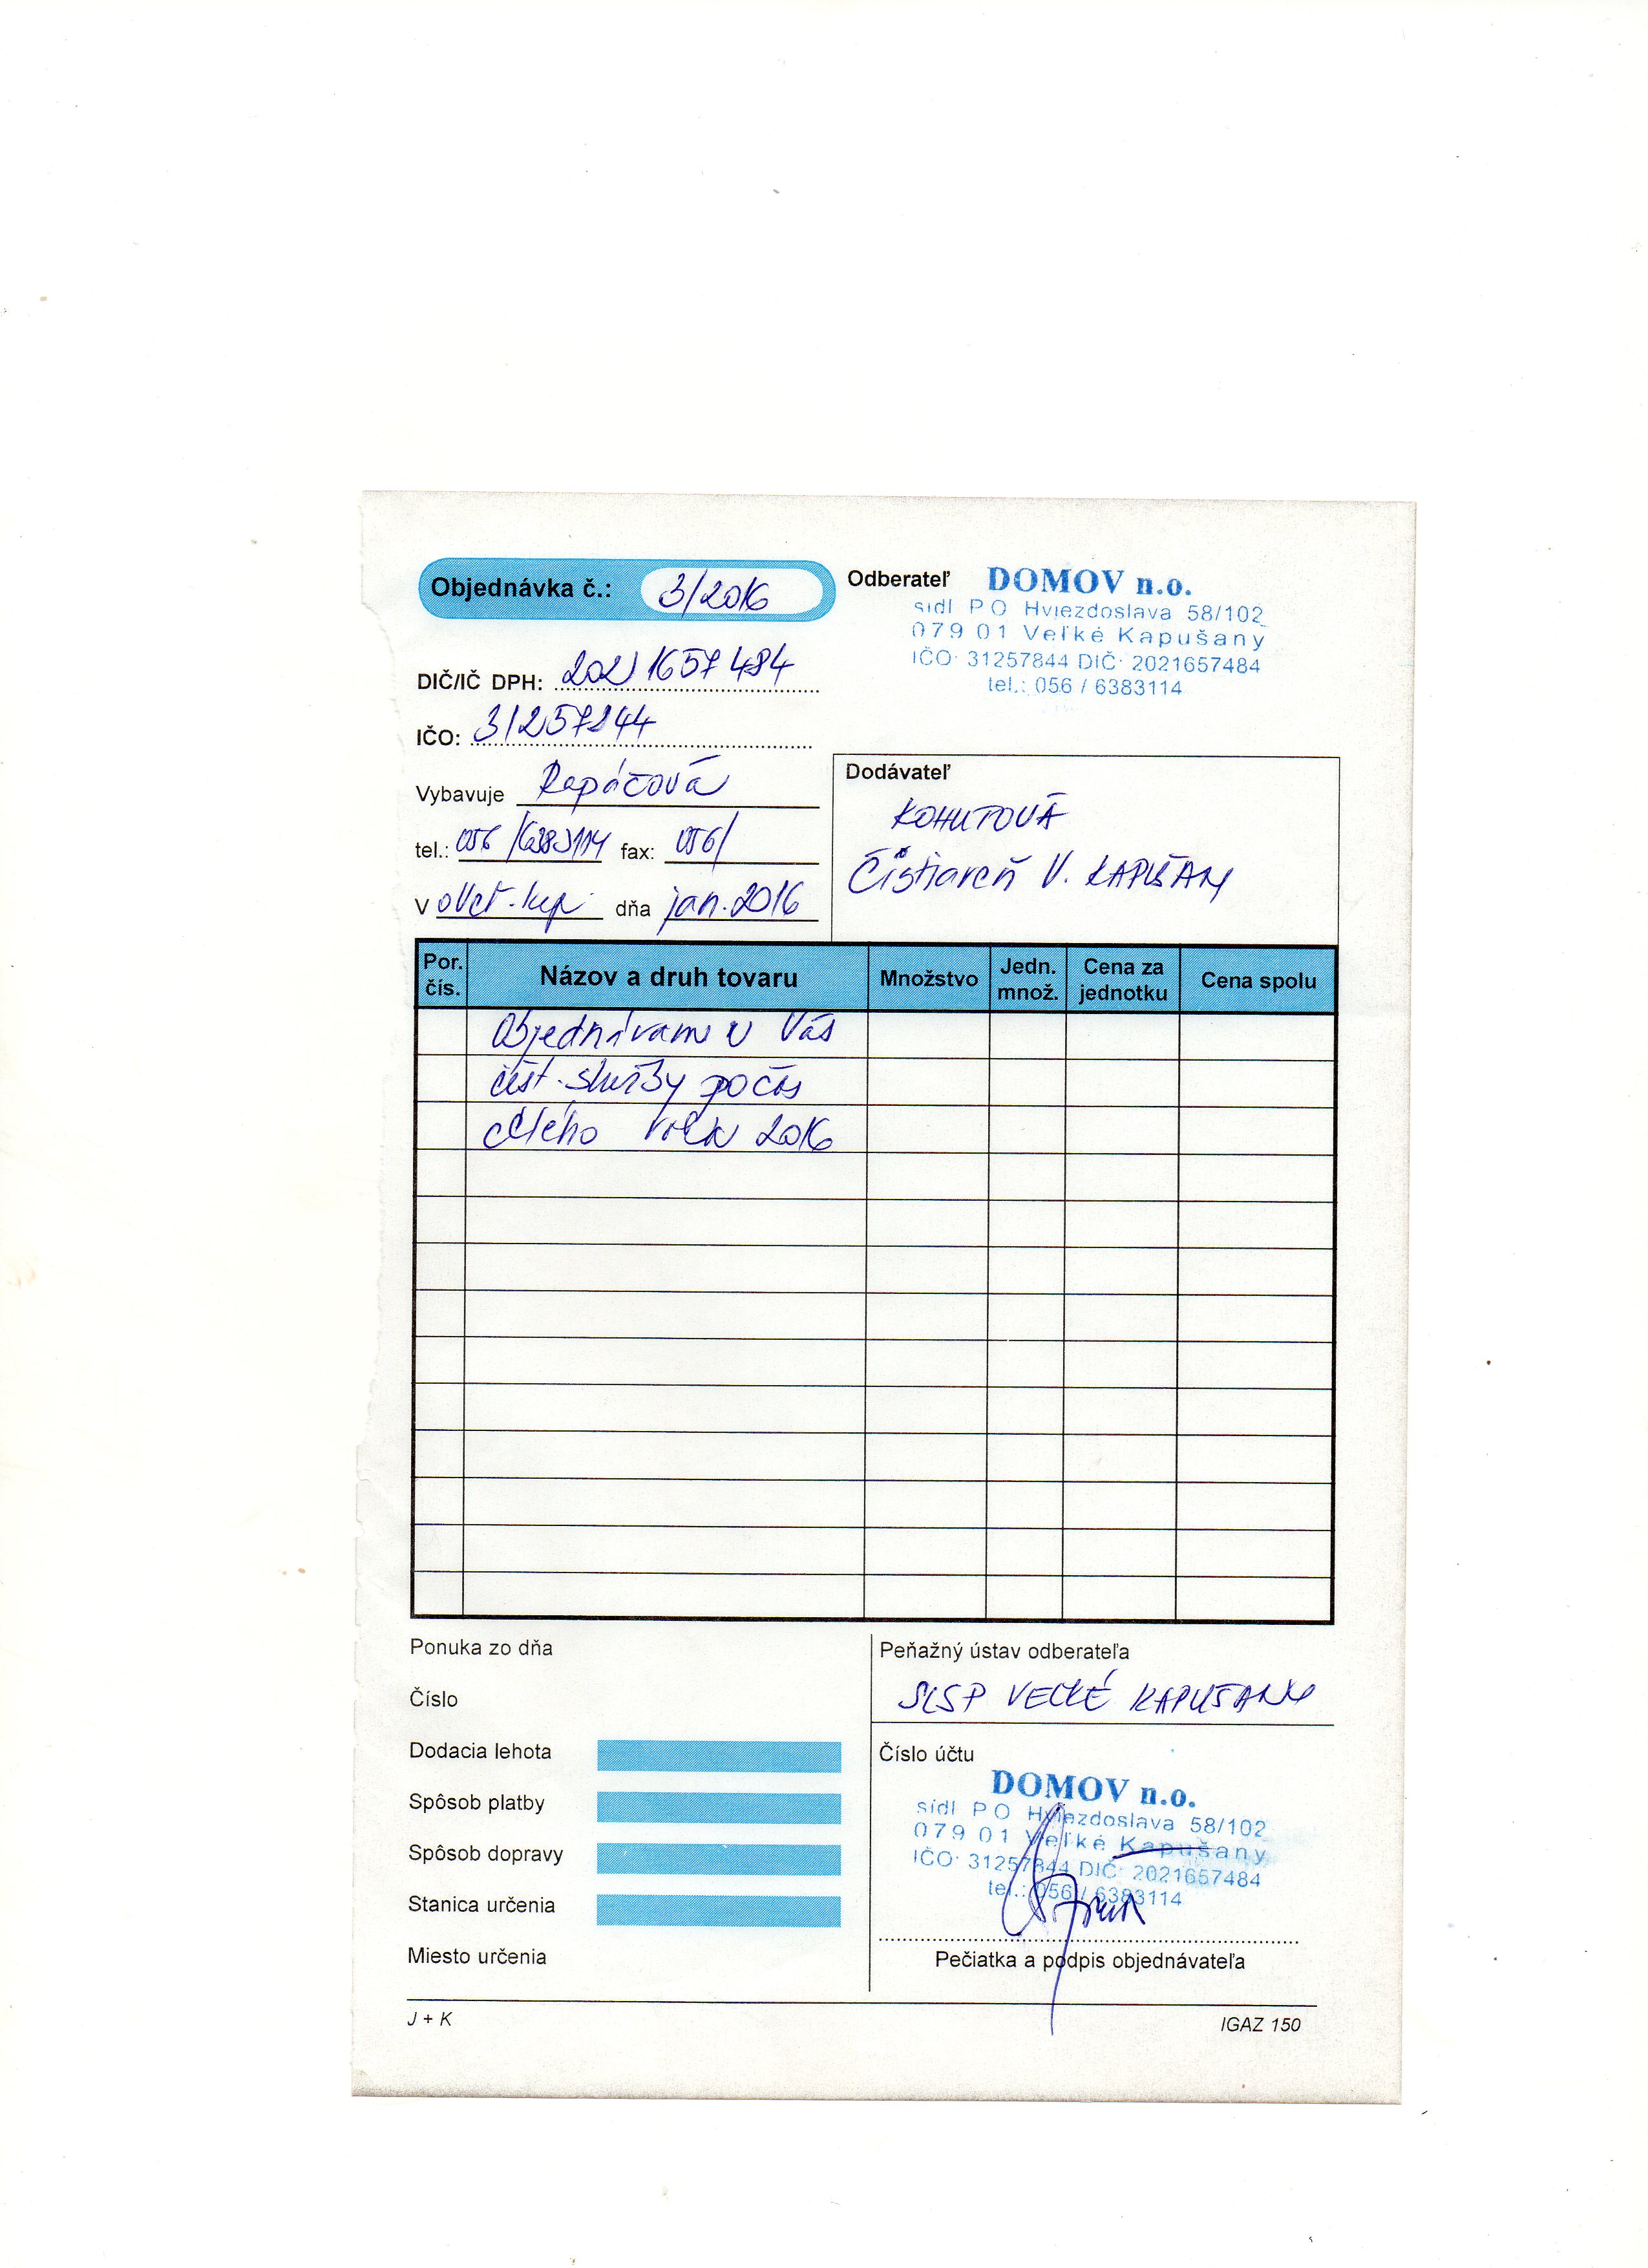 Objednávka č.: 3/2016
Odberateľ DOMOV n.o.
sídl PO Hviezdoslava 58/102
079 01 Veľké Kapušany
IČO: 31257844 DIČ: 2021657484
tel.: 056 / 6383114
DIČ/IČ DPH: 2021657484
IČO: 31257844
Vybavuje Rapáčová
tel.: 056/6383114 fax: 056/
V dňa jan. 2016
Dodávateľ
KOHUTOVÁ
Čistiareň V. KAPUŠANY
Por. čís. Názov a druh tovaru Množstvo Jedn. množ. Cena za jednotku Cena spolu
Objednávam u Vás
čist. služby počas
celého roku 2016
Ponuka zo dňa
Číslo
Dodacia lehota
Spôsob platby
Spôsob dopravy
Stanica určenia
Miesto určenia
Peňažný ústav odberateľa
SLSP VEĽKÉ KAPUŠANY
Číslo účtu
DOMOV n.o.
sídl PO Hviezdoslava 58/102
079 01 Veľké Kapušany
IČO: 31257844 DIČ: 2021657484
tel.: 056 / 6383114
Pečiatka a podpis objednávateľa
J + K
IGAZ 150